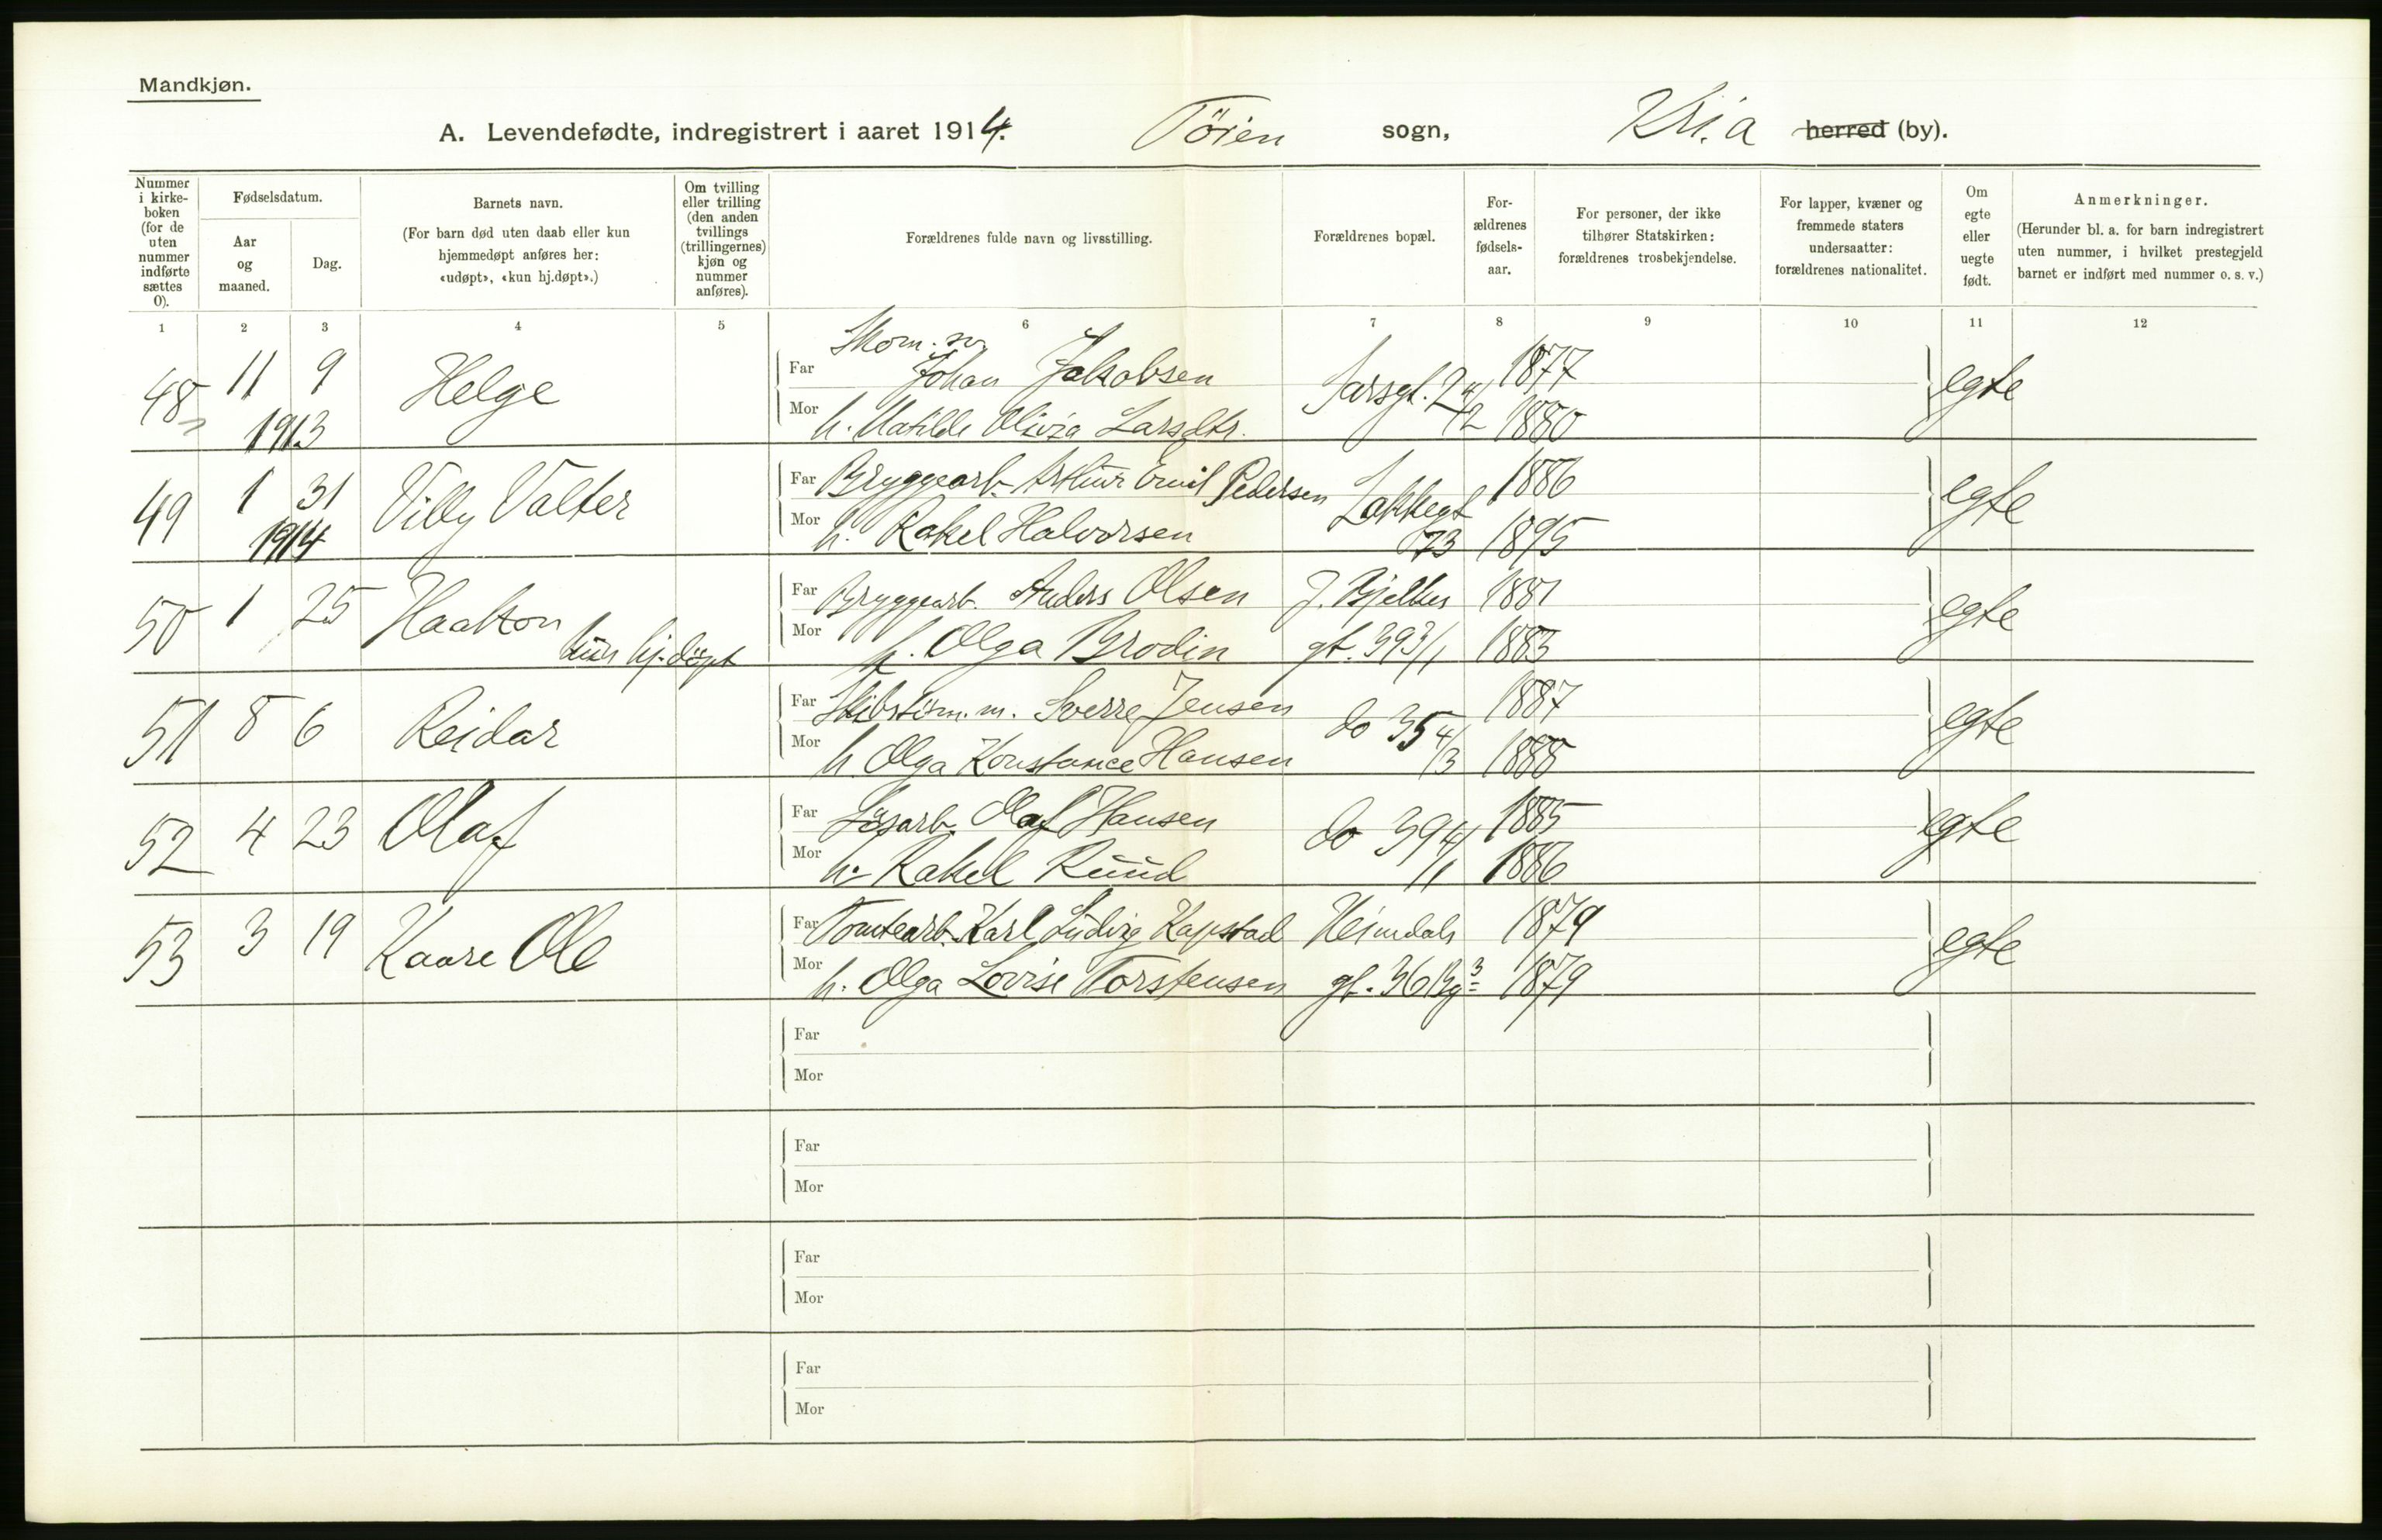 Mandkjøn.
A. Levendefødte, indregistrert i aaret 1914. Töien sogn, Kr.a herred (by).
Nummer i kirke- boken (for de uten nummer indførte sættes 0).
Fødselsdatum.
Aar og maaned.
Dag.
Barnets navn.
(For barn død uten daab eller kun hjemmedøpt anføres her: «udøpt», «kun hj.døpt».)
Om tvilling eller trilling (den anden tvillings (trillingernes) kjøn og nummer anføres).
Forældrenes fulde navn og livsstilling.
Forældrenes bopæl.
For- ældrenes fødsels- aar.
For personer, der ikke tilhører Statskirken: forældrenes trosbekjendelse.
For lapper, kvæner og fremmede staters undersaatter: forældrenes nationalitet.
Om egte eller uegte født.
Anmerkninger.
(Herunder bl. a. for barn indregistrert uten nummer, i hvilket prestegjeld barnet er indført med nummer o. s. v.)
1 2 3 4 5 6 7 8 9 10 11 12
48 11 9 Helge Far Skom. sv. Johan Jakobsen Sarsgt. 2 4/2 1877 egte
1913 Mor h. Matilde Olivia Larsdtr. 1880
49 1 31 Villy Valter Far Bryggearb. Arthur Emil Pedersen Lakkegt 1886 egte
1914 Mor h. Rakel Halvorsen 73 1895
50 1 25 Haakon Far Bryggearb. Anders Olsen J. Bjelkes 1881 egte
kun hj.döpt Mor h. Olga Brodin gt. 39 3/1 1883
51 8 6 Reidar Far Sverre Jensen do 35 4/3 1887 egte
Mor h. Olga Konstance Hansen 1888
52 4 23 Olaf Far Løsarb. Olaf Hansen do 39 4/1 1885 egte
Mor h. Rakel Ruud 1886
53 3 19 Kaare Ole Far Tomtearb. Karl Ludvig Kapstad Heimdals 1879 egte
Mor h. Olga Lovise Torstensen gt. 36 Bg 3 1879
Far
Mor
Far
Mor
Far
Mor
Far
Mor